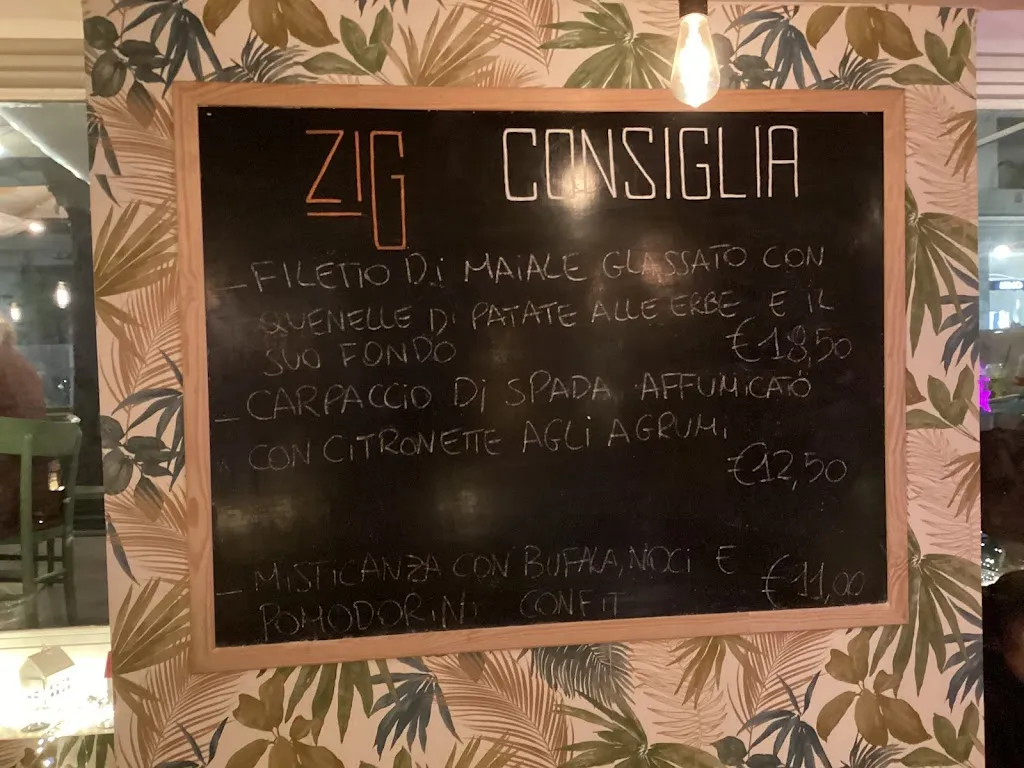 ZIG CONSIGLIA
_ FILETTO Di MAiALE GLASSATO CON
QUENELLE Di PATATE ALLE ERBE E iL
SUO FONDO €18,50
_ CARPACCiO Di SPADA AFFUMiCATO
CON CiTRONETTE AGLi AGRUMi
€12,50
_ MiSTiCANZA CON BUFALA, NOCi E
POMODORiNi CONFiT €11,00